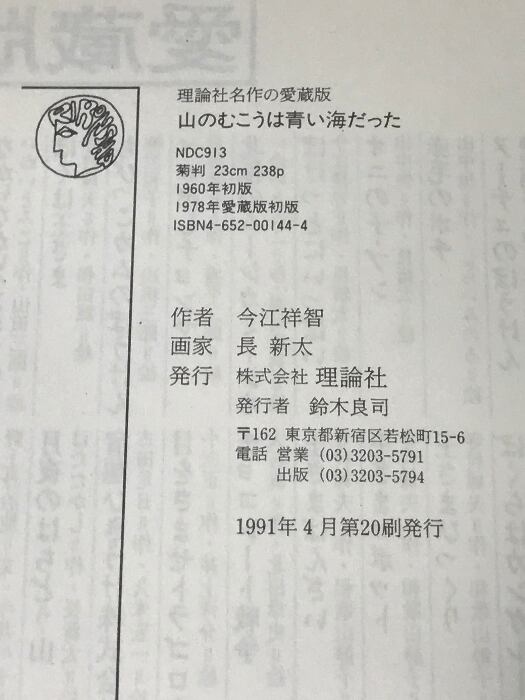 愛蔵版
理論社名作の愛蔵版
山のむこうは青い海だった
NDC913
菊判 23cm 238p
1960年初版
1978年愛蔵版初版
ISBN4-652-00144-4
作者 今江祥智
画家 長 新太
発行 株式会社 理論社
発行者 鈴木良司
〒162 東京都新宿区若松町15-6
電話 営業 (03)3203-5791
出版 (03)3203-5794
1991年4月第20刷発行